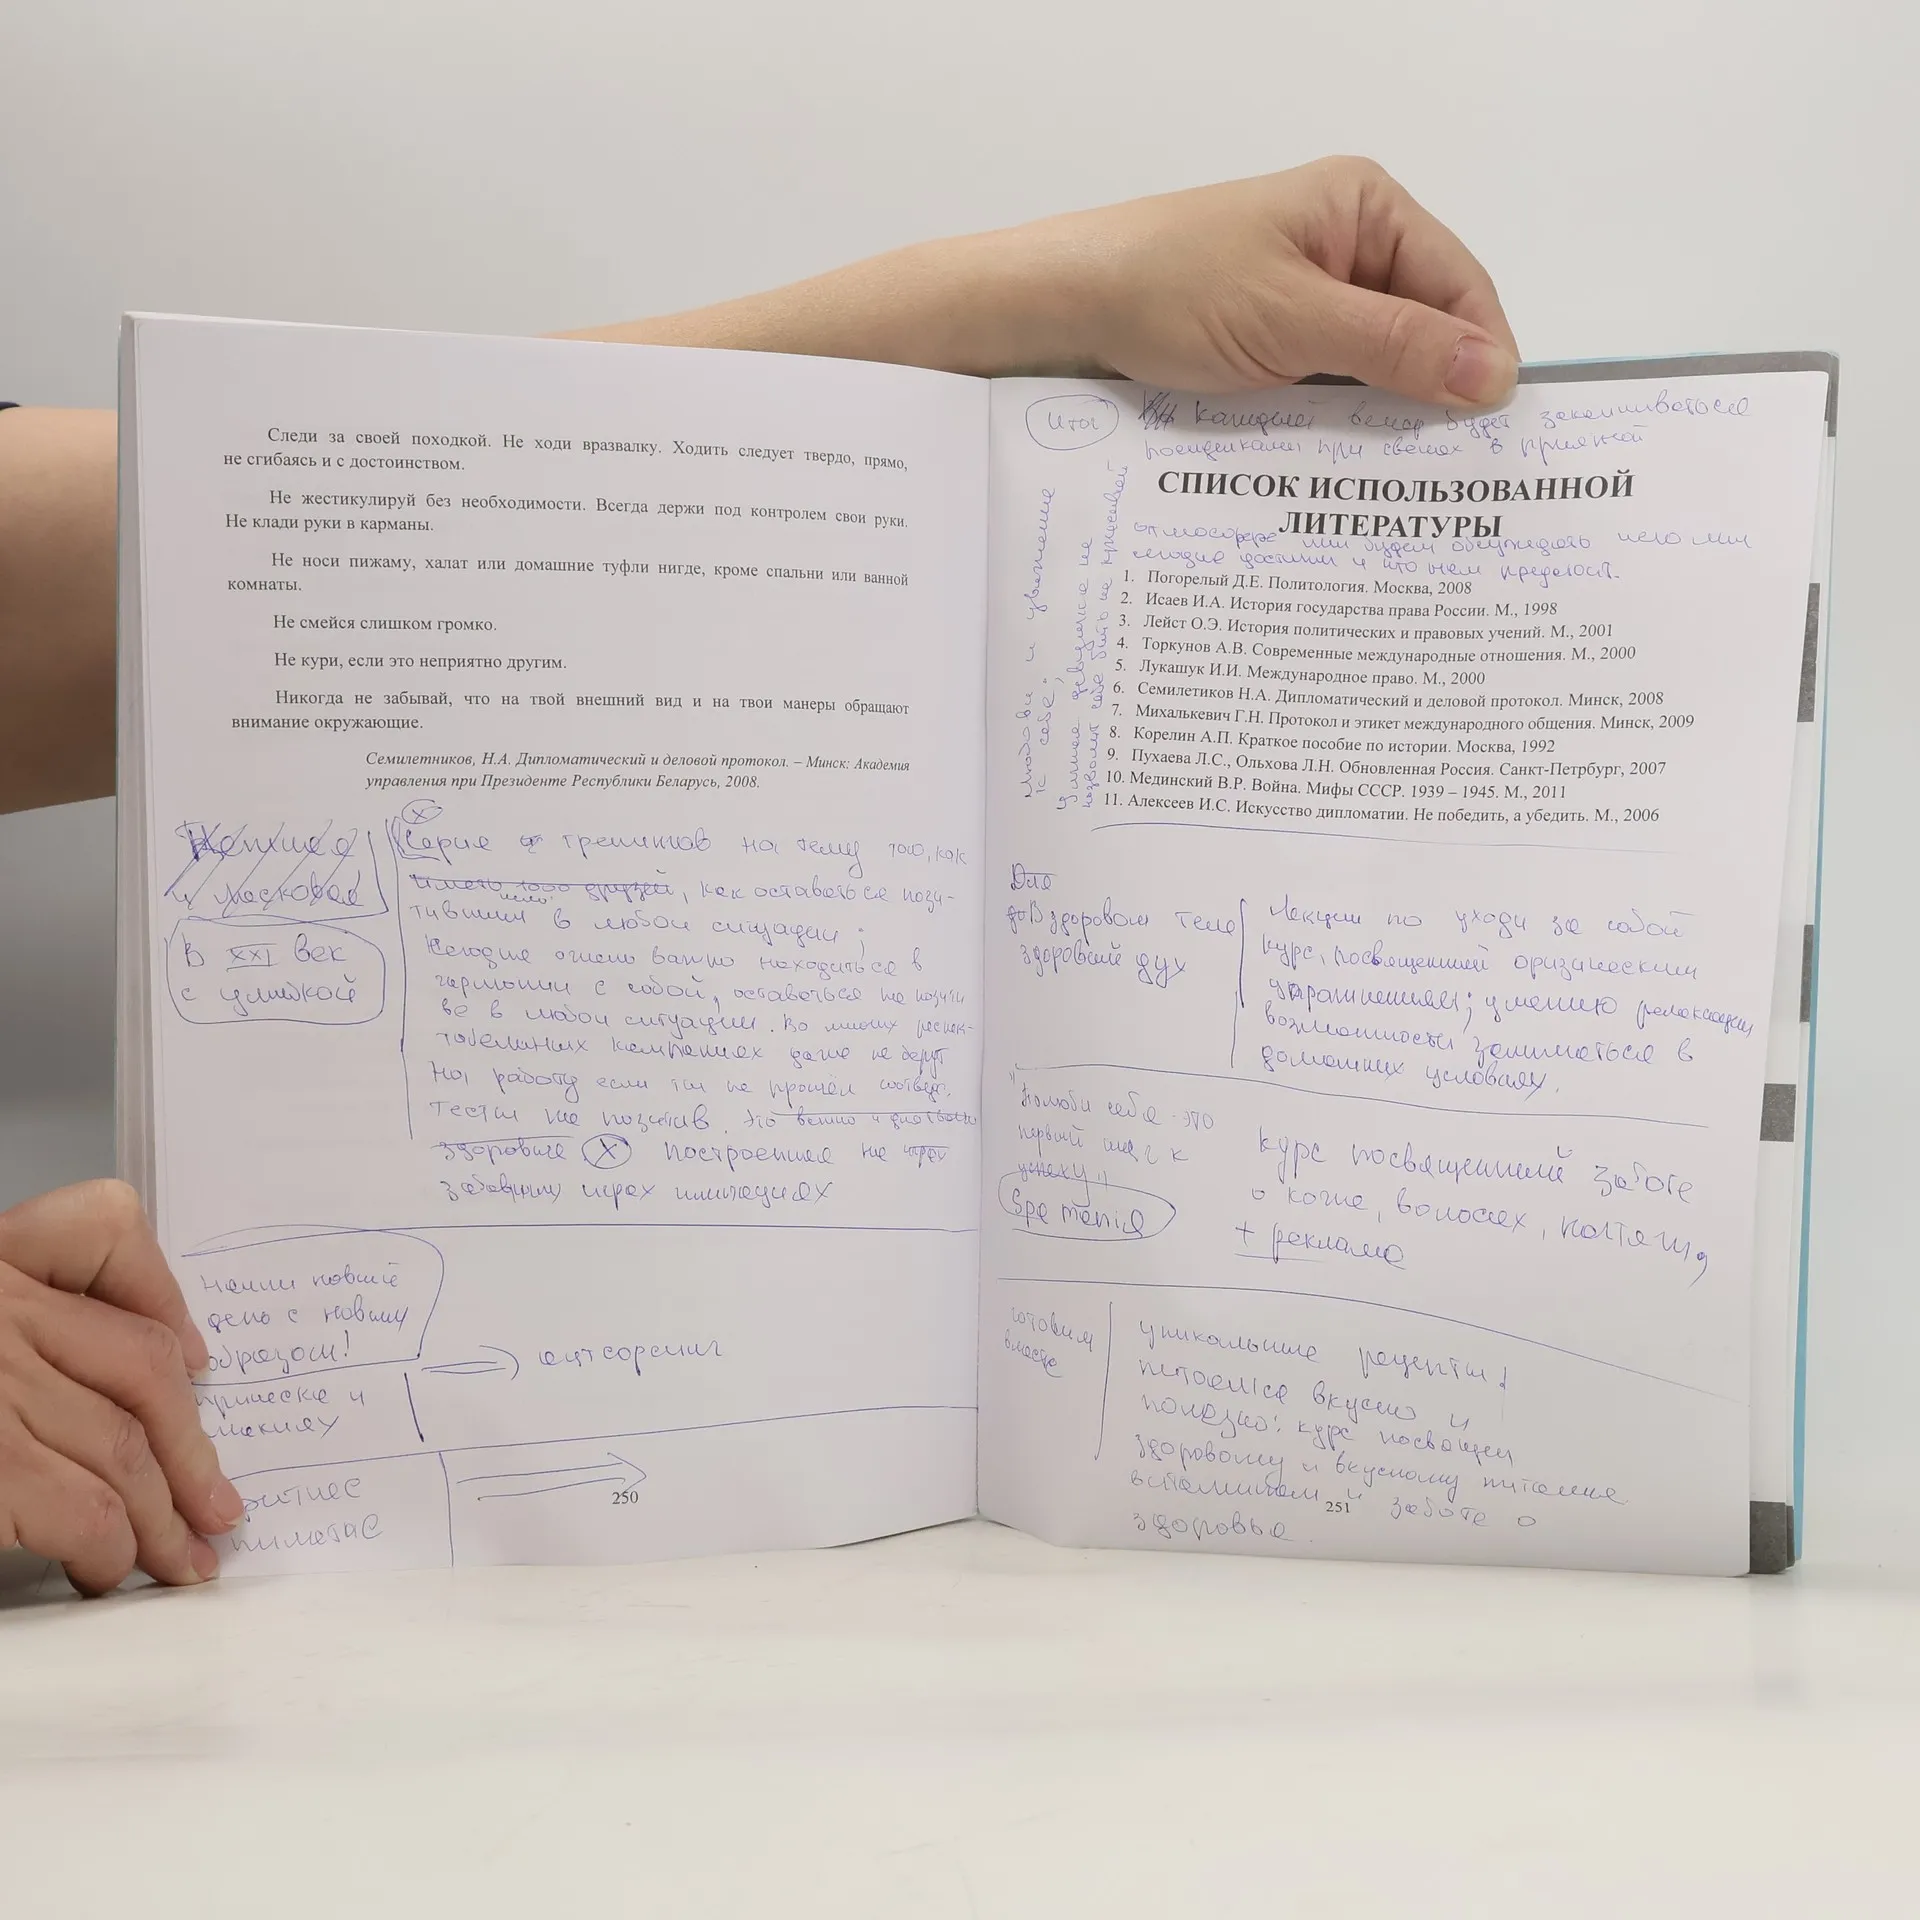 Следи за своей походкой. Не ходи вразвалку. Ходить следует твердо, прямо,
не сгибаясь и с достоинством.
Не жестикулируй без необходимости. Всегда держи под контролем свои руки.
Не клади руки в карманы.
Не носи пижаму, халат или домашние туфли нигде, кроме спальни или ванной
комнаты.
Не смейся слишком громко.
Не кури, если это неприятно другим.
Никогда не забывай, что на твой внешний вид и на твои манеры обращают
внимание окружающие.
Семилетников, Н.А. Дипломатический и деловой протокол. – Минск: Академия
управления при Президенте Республики Беларусь, 2008.
В XXI век
с улыбкой
Серия тренингов на тему того, как
иметь 1000 друзей, как оставаться пози-
тивным в любой ситуации;
Сегодня очень важно находиться в
гармонии с собой, оставаться на позити
ве в любой ситуации. Во многих респек-
табельных компаниях даже не берут
на работу если ты не прошёл соответ.
тесты на позитив. Это важно и для твоего
здоровья X построенная на
забавных играх имитациях
Начни новый
день с новым
образом!
прическа и
макияж
аутсорсинг
фитнес
пилатес
250
Итог
каждый вечер будет заканчиваться
посиделками при свечах в приятной
СПИСОК ИСПОЛЬЗОВАННОЙ
ЛИТЕРАТУРЫ
атмосфере мы будем обсуждать чего мы
сегодня достигли и что нам предстоит.
1. Погорелый Д.Е. Политология. Москва, 2008
2. Исаев И.А. История государства права России. М., 1998
3. Лейст О.Э. История политических и правовых учений. М., 2001
4. Торкунов А.В. Современные международные отношения. М., 2000
5. Лукашук И.И. Международное право. М., 2000
6. Семилетиков Н.А. Дипломатический и деловой протокол. Минск, 2008
7. Михалькевич Г.Н. Протокол и этикет международного общения. Минск, 2009
8. Корелин А.П. Краткое пособие по истории. Москва, 1992
9. Пухаева Л.С., Ольхова Л.Н. Обновленная Россия. Санкт-Петрбург, 2007
10. Мединский В.Р. Война. Мифы СССР. 1939 – 1945. М., 2011
11. Алексеев И.С. Искусство дипломатии. Не победить, а убедить. М., 2006
любови и уважение
к себе"
Умная девушка не
позволит себе быть не красивой
Для
В здоровом теле
здоровый дух
Лекции по уходу за собой
курс, посвященный физическим
упражнениям; умению релаксации
возможности заниматься в
домашних условиях.
"Полюби себя - это
первый шаг к
успеху"
Spa mania
курс посвященный заботе
о коже, волосах, ногтях,
+ реклама
готовим
вместе
уникальные рецепты!
питаемся вкусно и
полезно: курс посвящен
здоровому и вкусному питанию
витаминам и заботе о
здоровье.
251